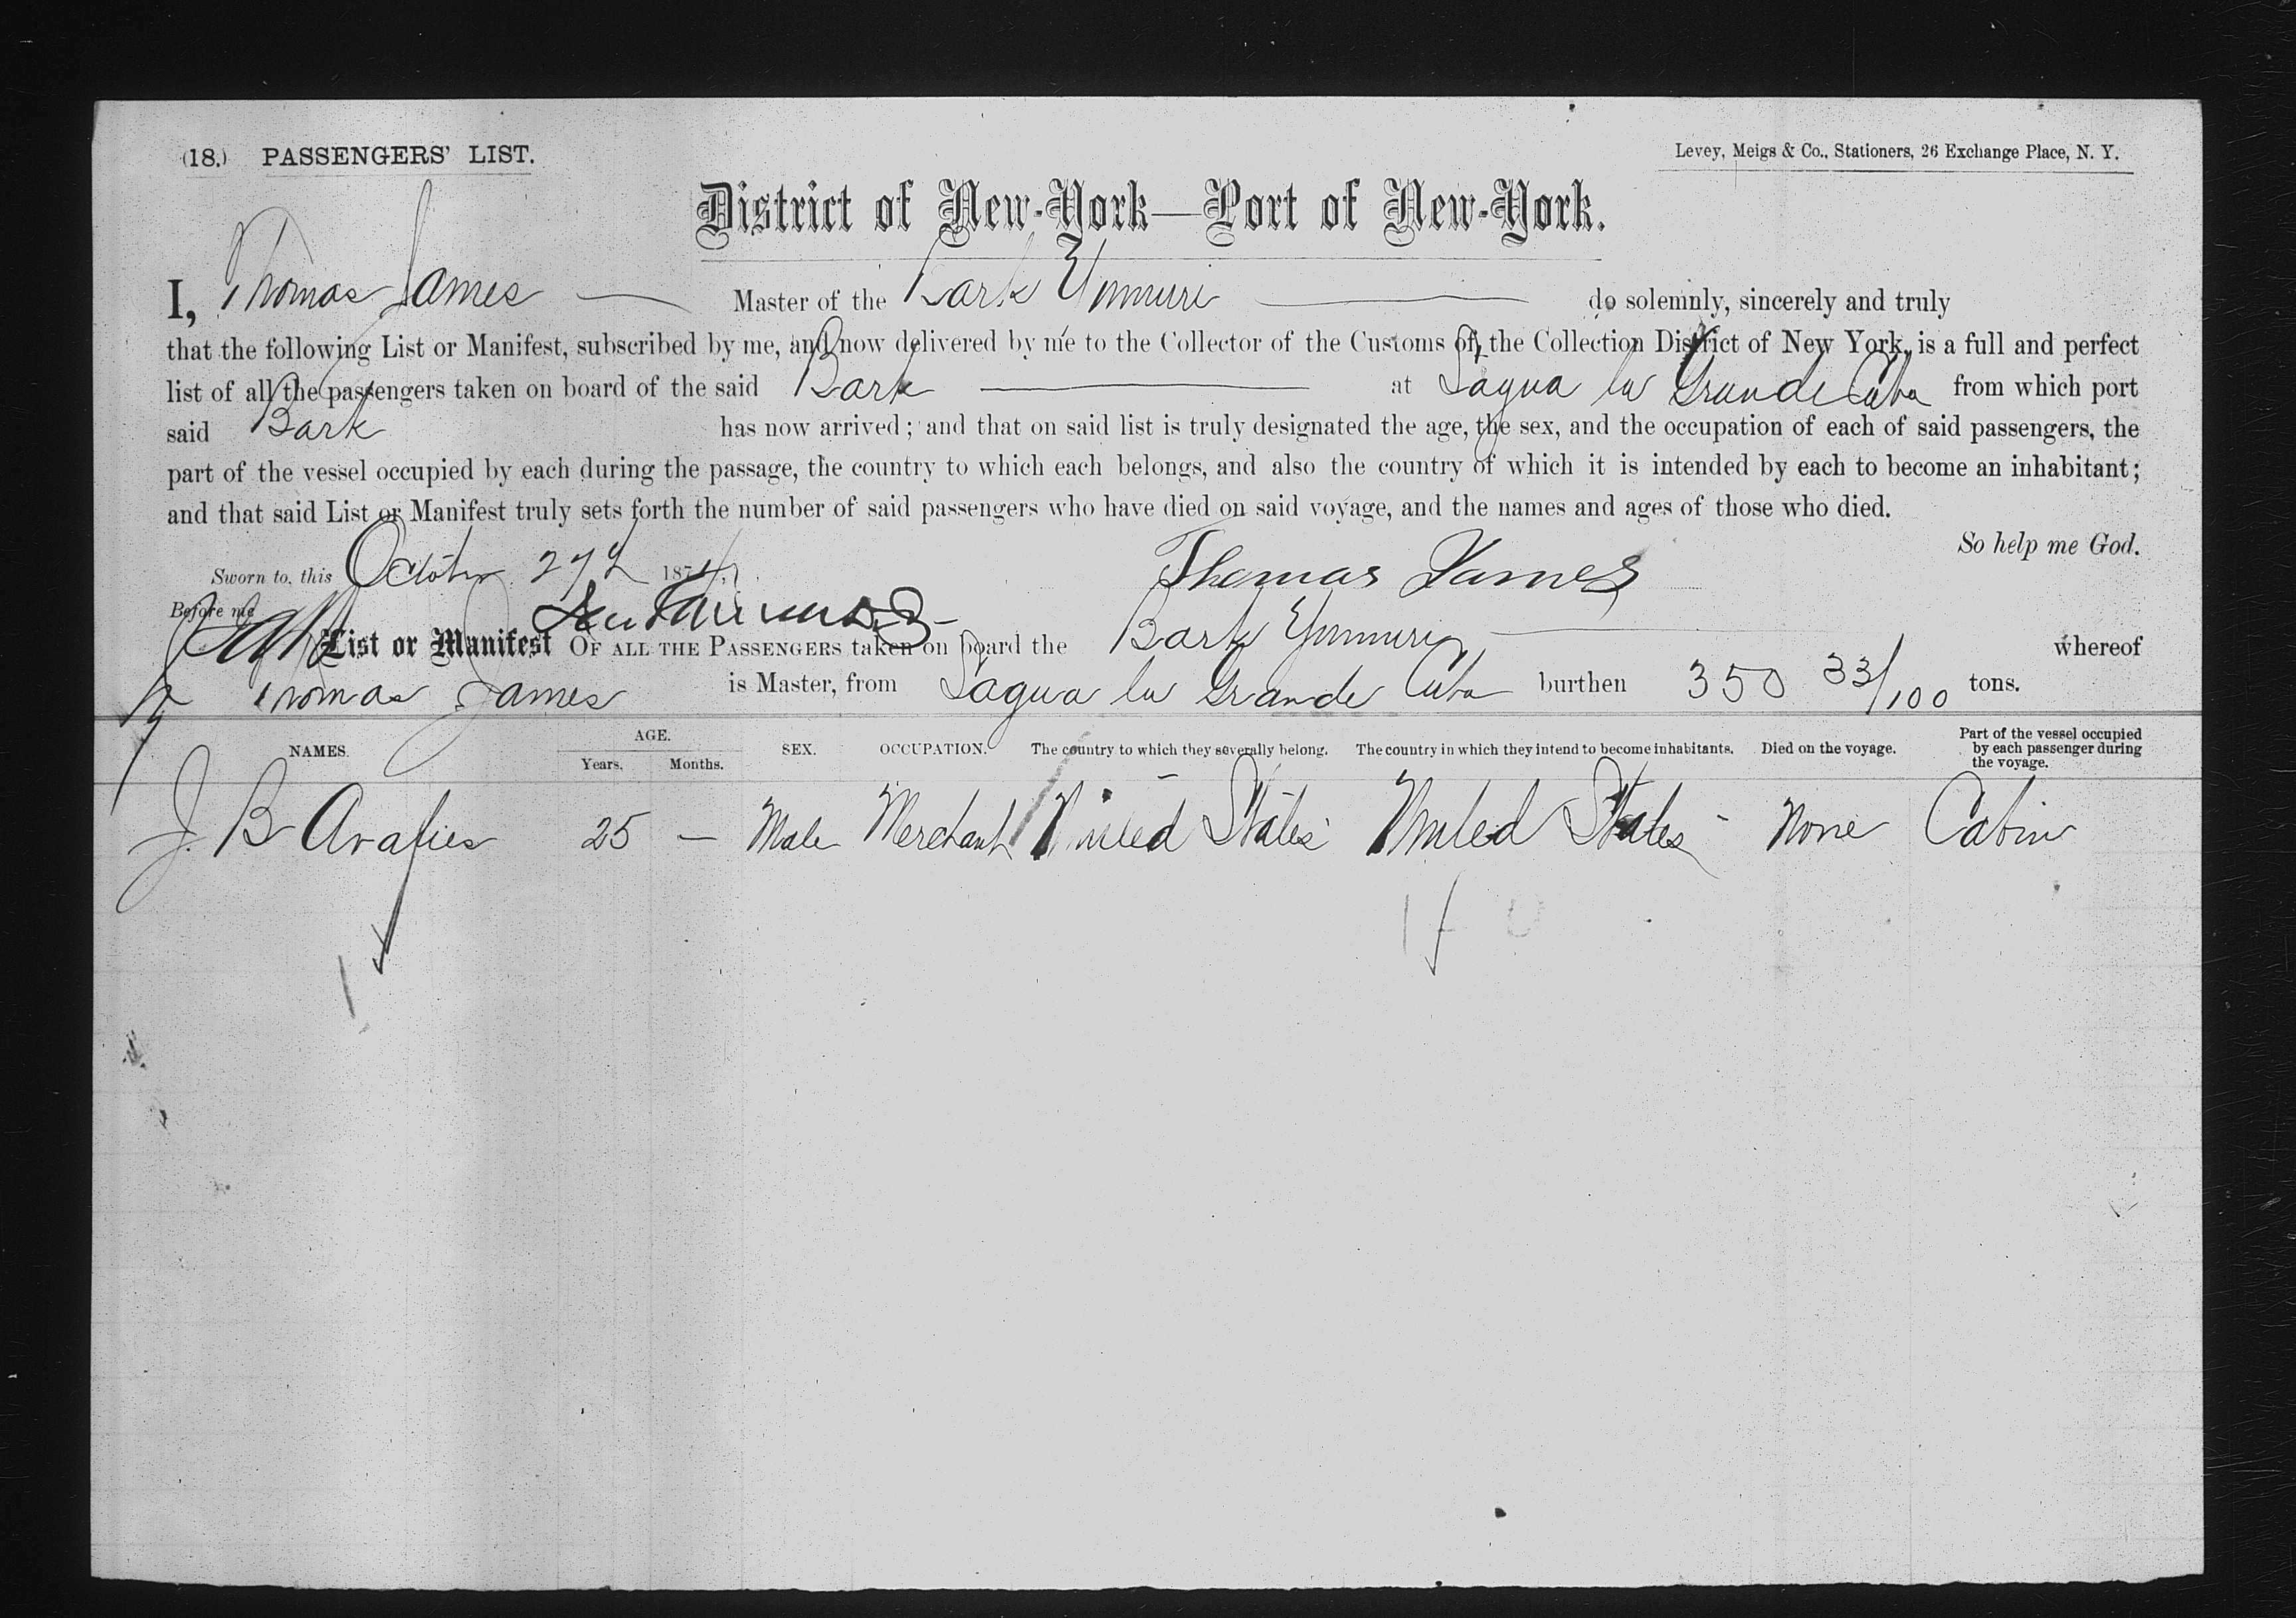 (18.) PASSENGERS' LIST.
Levey, Meigs & Co., Stationers, 26 Exchange Place, N. Y.
District of New-York—Port of New-York.
I, Thomas James — Master of the Bark Yumuri — do solemnly, sincerely and truly
that the following List or Manifest, subscribed by me, and now delivered by me to the Collector of the Customs of the Collection District of New York, is a full and perfect
list of all the passengers taken on board of the said Bark — at Sagua la Grande Cuba from which port
said Bark has now arrived; and that on said list is truly designated the age, the sex, and the occupation of each of said passengers, the
part of the vessel occupied by each during the passage, the country to which each belongs, and also the country of which it is intended by each to become an inhabitant;
and that said List or Manifest truly sets forth the number of said passengers who have died on said voyage, and the names and ages of those who died.
So help me God.
Sworn to, this October 27th 1874, Thomas James
Before me
List or Manifest OF ALL THE PASSENGERS taken on board the Bark Yumuri — whereof
Thomas James is Master, from Sagua la Grande Cuba burthen 350 33/100 tons.
NAMES. AGE. Years. Months. SEX. OCCUPATION. The country to which they severally belong. The country in which they intend to become inhabitants. Died on the voyage. Part of the vessel occupied by each passenger during the voyage.
J. B 25 — Male Merchant United States United States None Cabin